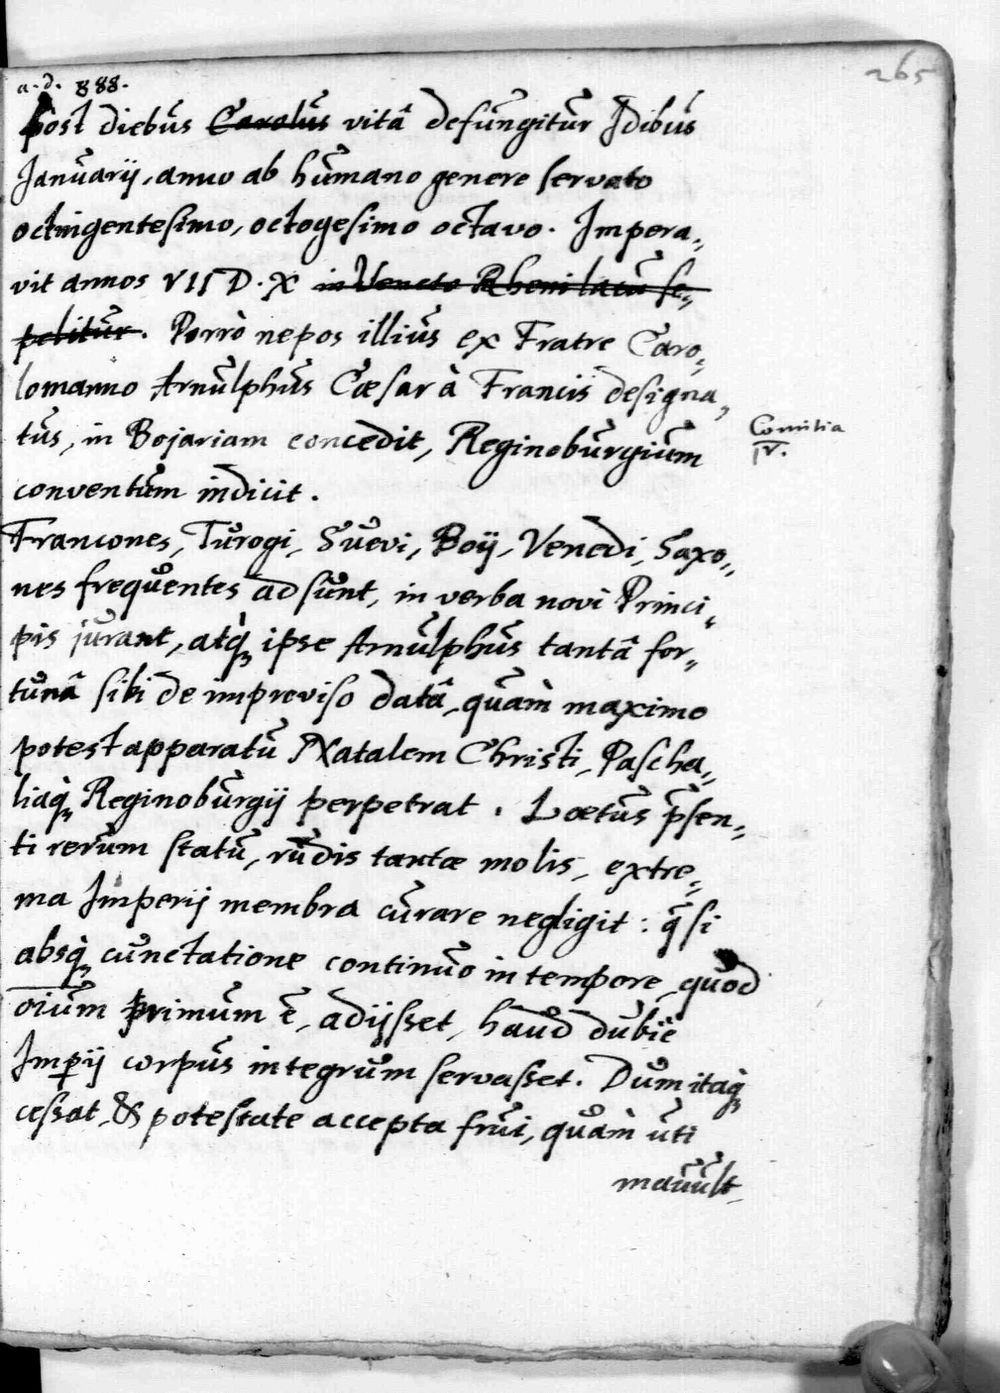 265
a. d. 888.
post diebus Carolus vitâ defungitur Idibus
Januarij, anno ab humano genere servato
octingentesimo, octogesimo octavo. Impera„
vit annos VII D. X in Veneto Rheni lacu se„
pelitur. Porrò nepos illius ex Fratre Caro„
lomanno Arnulphus Cæsar à Francis designa„
tus, in Bojariam concedit, Reginoburgium
Comitia
IV.
conventum indicit.
Francones, Turogi, Suevi, Boij, Venedi, Saxo„
nes frequentes adsunt, in verba novi Princi„
pis jurant, atq́ꝫ ipse Arnulphus tantâ for„
tunâ sibi de improviso datâ, quàm maximo
potest apparatu Natalem Christi, Pascha„
liaq́ꝫ Reginoburgij perpetrat. Lætus p̃sen„
ti rerum statu, rudis tantæ molis, extre„
ma Imperij membra curare negligit: q̃ si
absq́ꝫ cunctatione continuo in tempore, quod
oīum primum ẽ, adijsset, haud dubiè
Imꝑij corpus integrum servasset. Dum itaq́ꝫ
cessat, & potestate accepta frui, quàm uti
mavult,